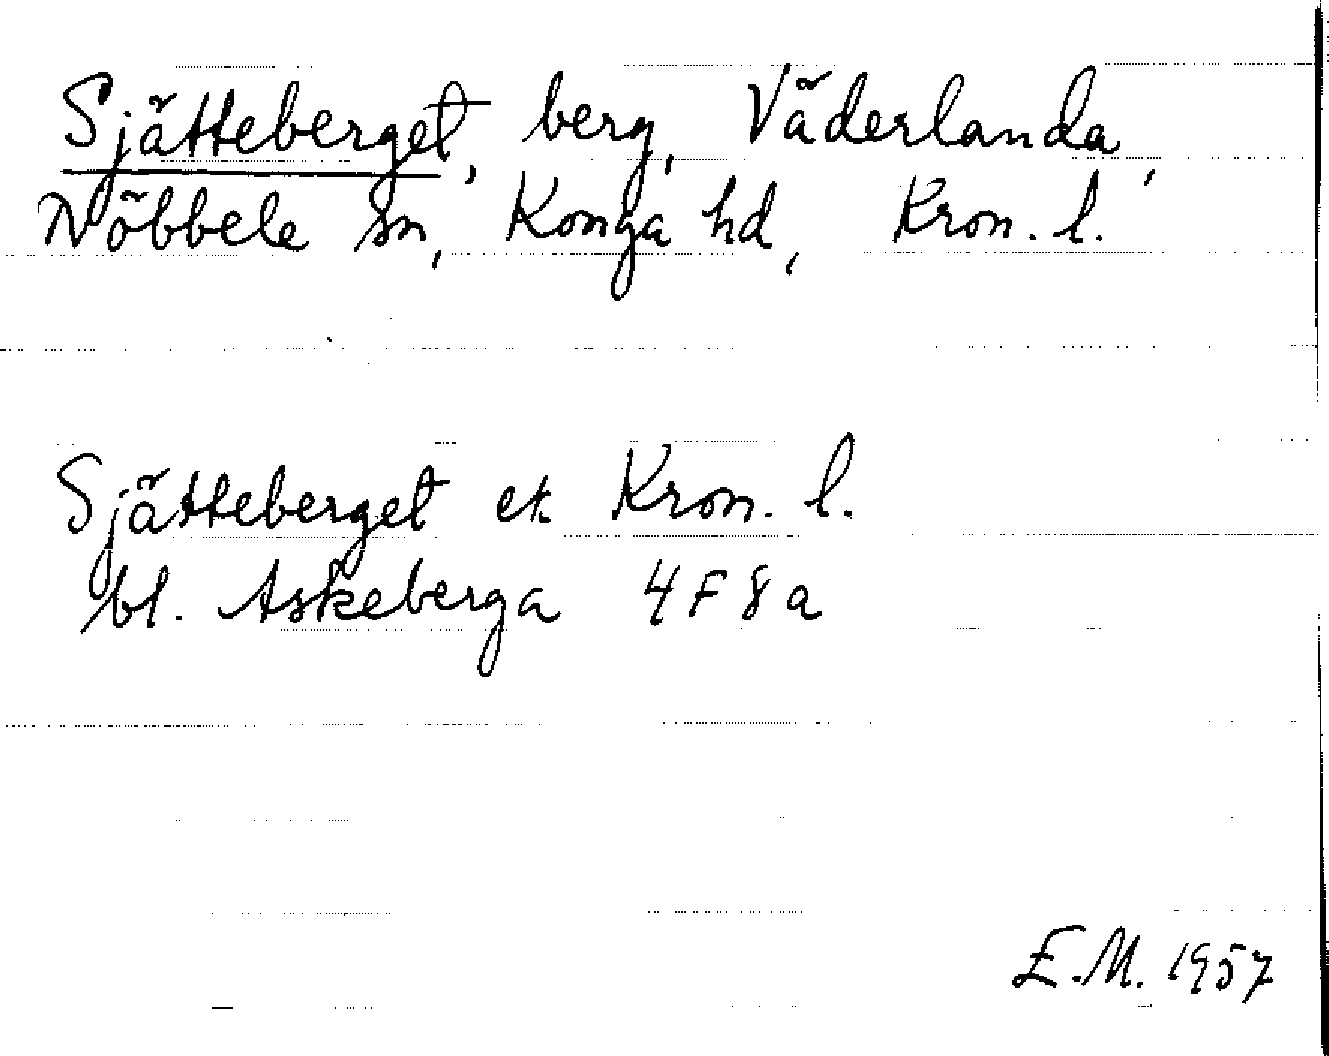 Sjätteberget, berg, Väderlanda,
Nöbbele sn, Konga hd, Kron. l.
Sjätteberget ek Kron. l.
bl. Askeberga 4F8a
E.M. 1957